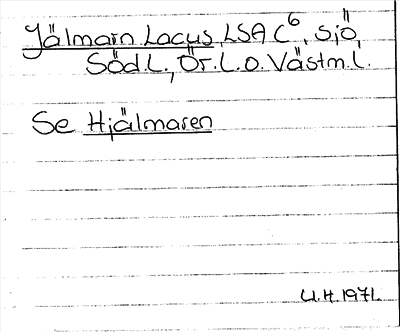 Jälmarn Lacus, LSA C6, sjö,
Söd L., Ör. L. o. Västm. L.
Se Hjälmaren
U.H. 1971.